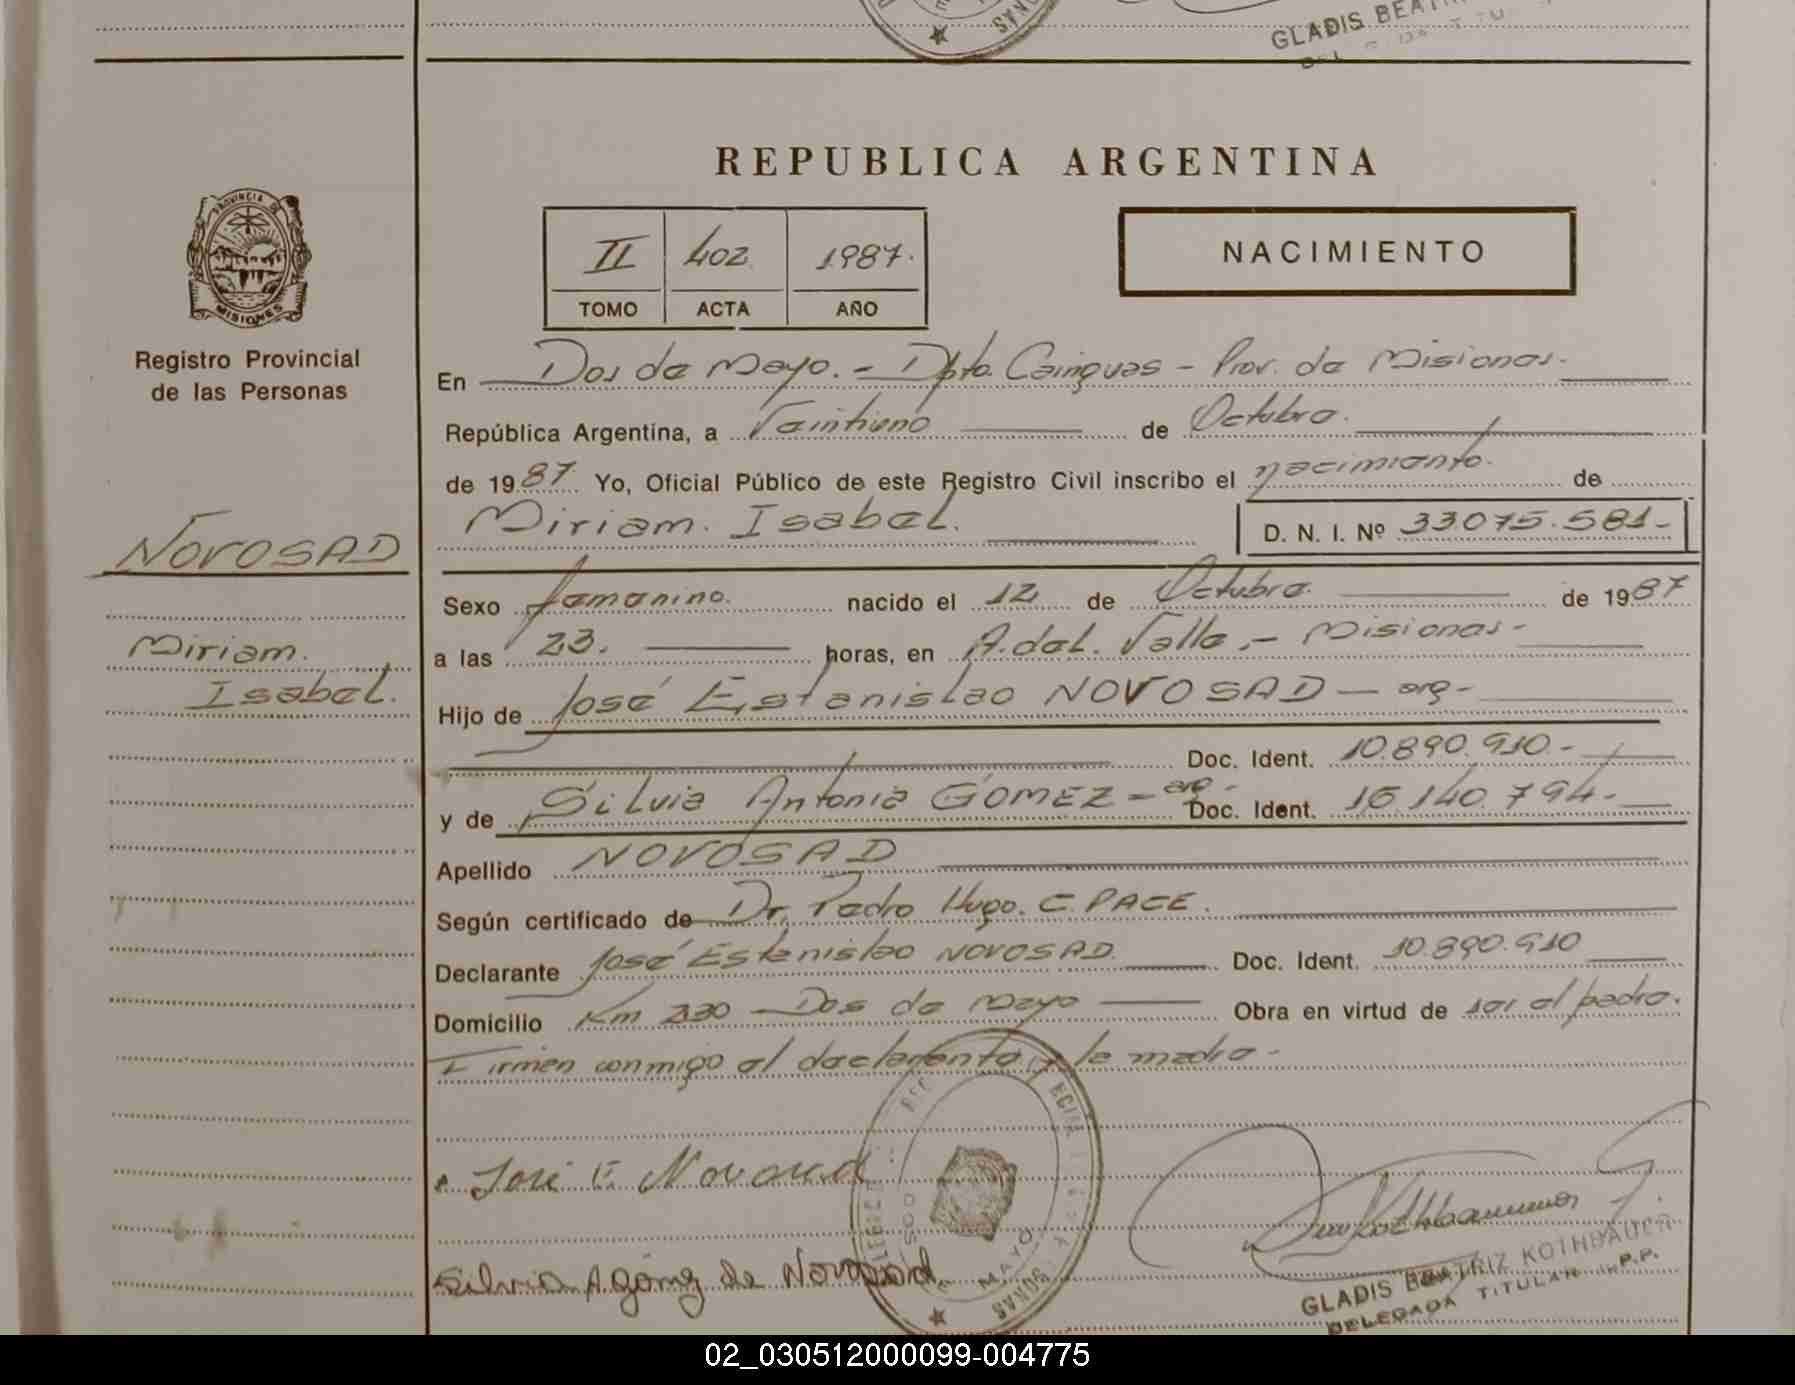 GLADIS
REPUBLICA ARGENTINA
II 402 1987.
TOMO ACTA AÑO
NACIMIENTO
PROVINCIA DE
MISIONES
Registro Provincial
de las Personas
En Dos de Mayo. - Dpto. Cainguas - Prov. de Misiones.
República Argentina, a Veintiuno de Octubre.
de 1987. Yo, Oficial Público de este Registro Civil inscribo el nacimiento. de
Miriam. Isabel. D. N. I. Nº 33.075.581-
NOVOSAD
Miriam.
Isabel.
Sexo femenino. nacido el 12 de Octubre. de 1987
a las 23. horas, en A. del. Valle.- Misiones-
Hijo de José Estanislao NOVOSAD - arg-
Doc. Ident. 10.890.910.-
y de Silvia Antonia GOMEZ - arg- Doc. Ident. 16.140.794-
Apellido NOVOSAD
Según certificado de Dr. Pedro Hugo. C. PACE.
Declarante José Estanislao NOVOSAD. Doc. Ident. 10.890.910
Domicilio Km 230 - Dos de Mayo Obra en virtud de ser el padre.
Firman conmigo el declarante y la madre-
José E Novosad
Silvia A gómez de Novosad
DOS DE MAYO
GLADIS BEATRIZ KOTHBAUER
DELEGADA TITULAR R.P.P.
02_030512000099-004775